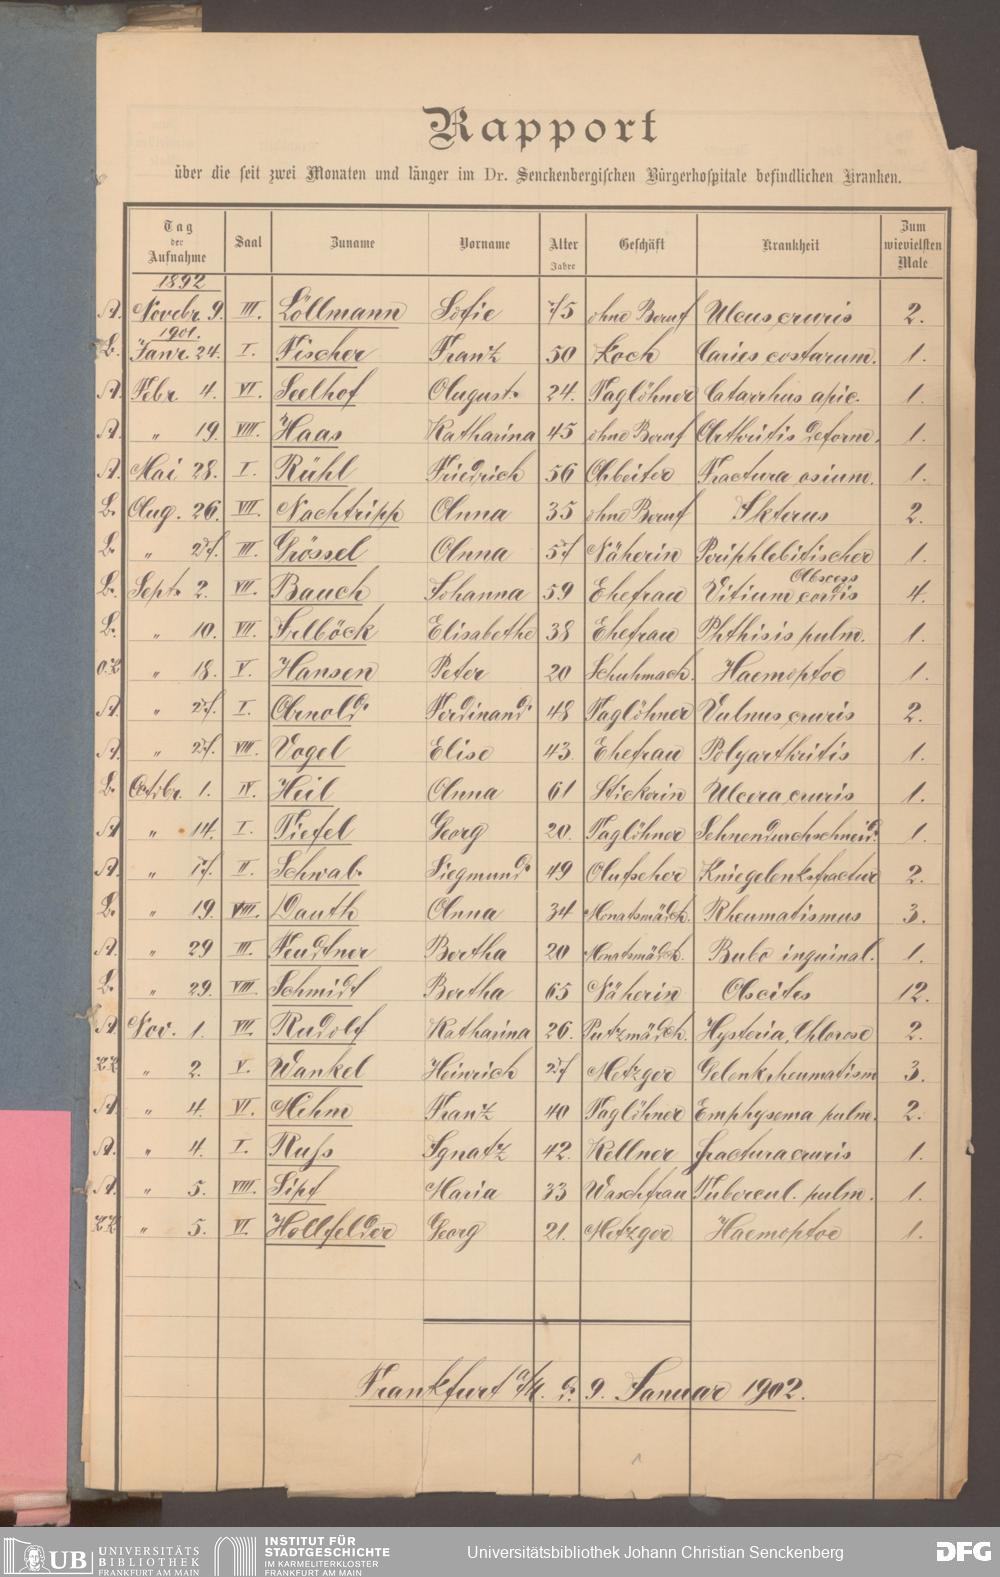 Rapport
über die seit zwei Monaten und länger im Dr. Senckenbergischen Bürgerhospitale befindlichen Kranken.
Tag der Aufnahme Saal Zuname Vorname Alter Jahre Geschäft Krankheit Zum wievielsten Male
1892
A. Novbr. 9. III. Löllmann Sofie 75 ohne Beruf Ulcus cruris 2.
1901.
L. Janr. 24. I. Fischer Franz 50 Koch Caries costarum. 1.
A. Febr. 4. VI. Seelhof August 24. Taglöhner Catarrhus apic. 1.
A. " 19. VIII. Haas Katharina 45 ohne Beruf Arthritis deform. 1.
A. Mai 28. I. Rühl Friedrich 56 Arbeiter Fractura osium. 1.
L. Aug. 26. VII. Nachtripp Anna 35 ohne Beruf Ikterus 2.
L. " 27. III. Grössel Anna 57 Näherin Periphlebitischer 1.
Abscess
L. Sept. 2. VII. Bauch Johanna 59 Ehefrau Vitium cordis 4.
L. " 10. VII. Irlböck Elisabethe 38 Ehefrau Phthisis pulm. 1.
O.K " 18. V. Hansen Peter 20 Schuhmach. Haemoptoe 1.
A. " 27. I. Arnold Ferdinand 48 Taglöhner Vulnus cruris 2.
A. " 27. VIII. Vogel Elise 43. Ehefrau Polyarthritis 1.
L. Octbr. 1. IV. Heil Anna 61 Stickerin Ulcera cruris 1.
A " 14. I. Tiefel Georg 20. Taglöhner Sehnendurchschneid. 1.
A. " 17. II. Schwab Siegmund 49 Aufseher Kniegelenksfractur 2.
L. " 19. VIII. Dauth Anna 34 Monatsmädch. Rheumatismus 3.
A. " 29 III. Feudtner Bertha 20 Monatsmädch. Bubo inguinal. 1.
L. " 29. VIII Schmidt Bertha 65 Näherin Ascites 12.
A. Nov. 1. VII. Rudolf Katharina 26. Putzmädch. Hysteria, Chlorose 2.
KK " 2. V. Wankel Heinrich 27 Metzger Gelenkrheumatism 3.
A. " 4. VI. Mehm Franz 40 Taglöhner Emphysema pulm. 2.
A. " 4. I. Russ Ignatz 42. Kellner fractura cruris 1.
A. " 5. VIII. Sipf Maria 33 Waschfrau Tubercul. pulm. 1.
KK " 5. VI. Hollfelder Georg 21. Metzger Haemoptoe 1.
Frankfurt a/M. d. 9. Januar 1902.
UB UNIVERSITÄTS BIBLIOTHEK FRANKFURT AM MAIN
INSTITUT FÜR STADTGESCHICHTE IM KARMELITERKLOSTER FRANKFURT AM MAIN
Universitätsbibliothek Johann Christian Senckenberg
DFG